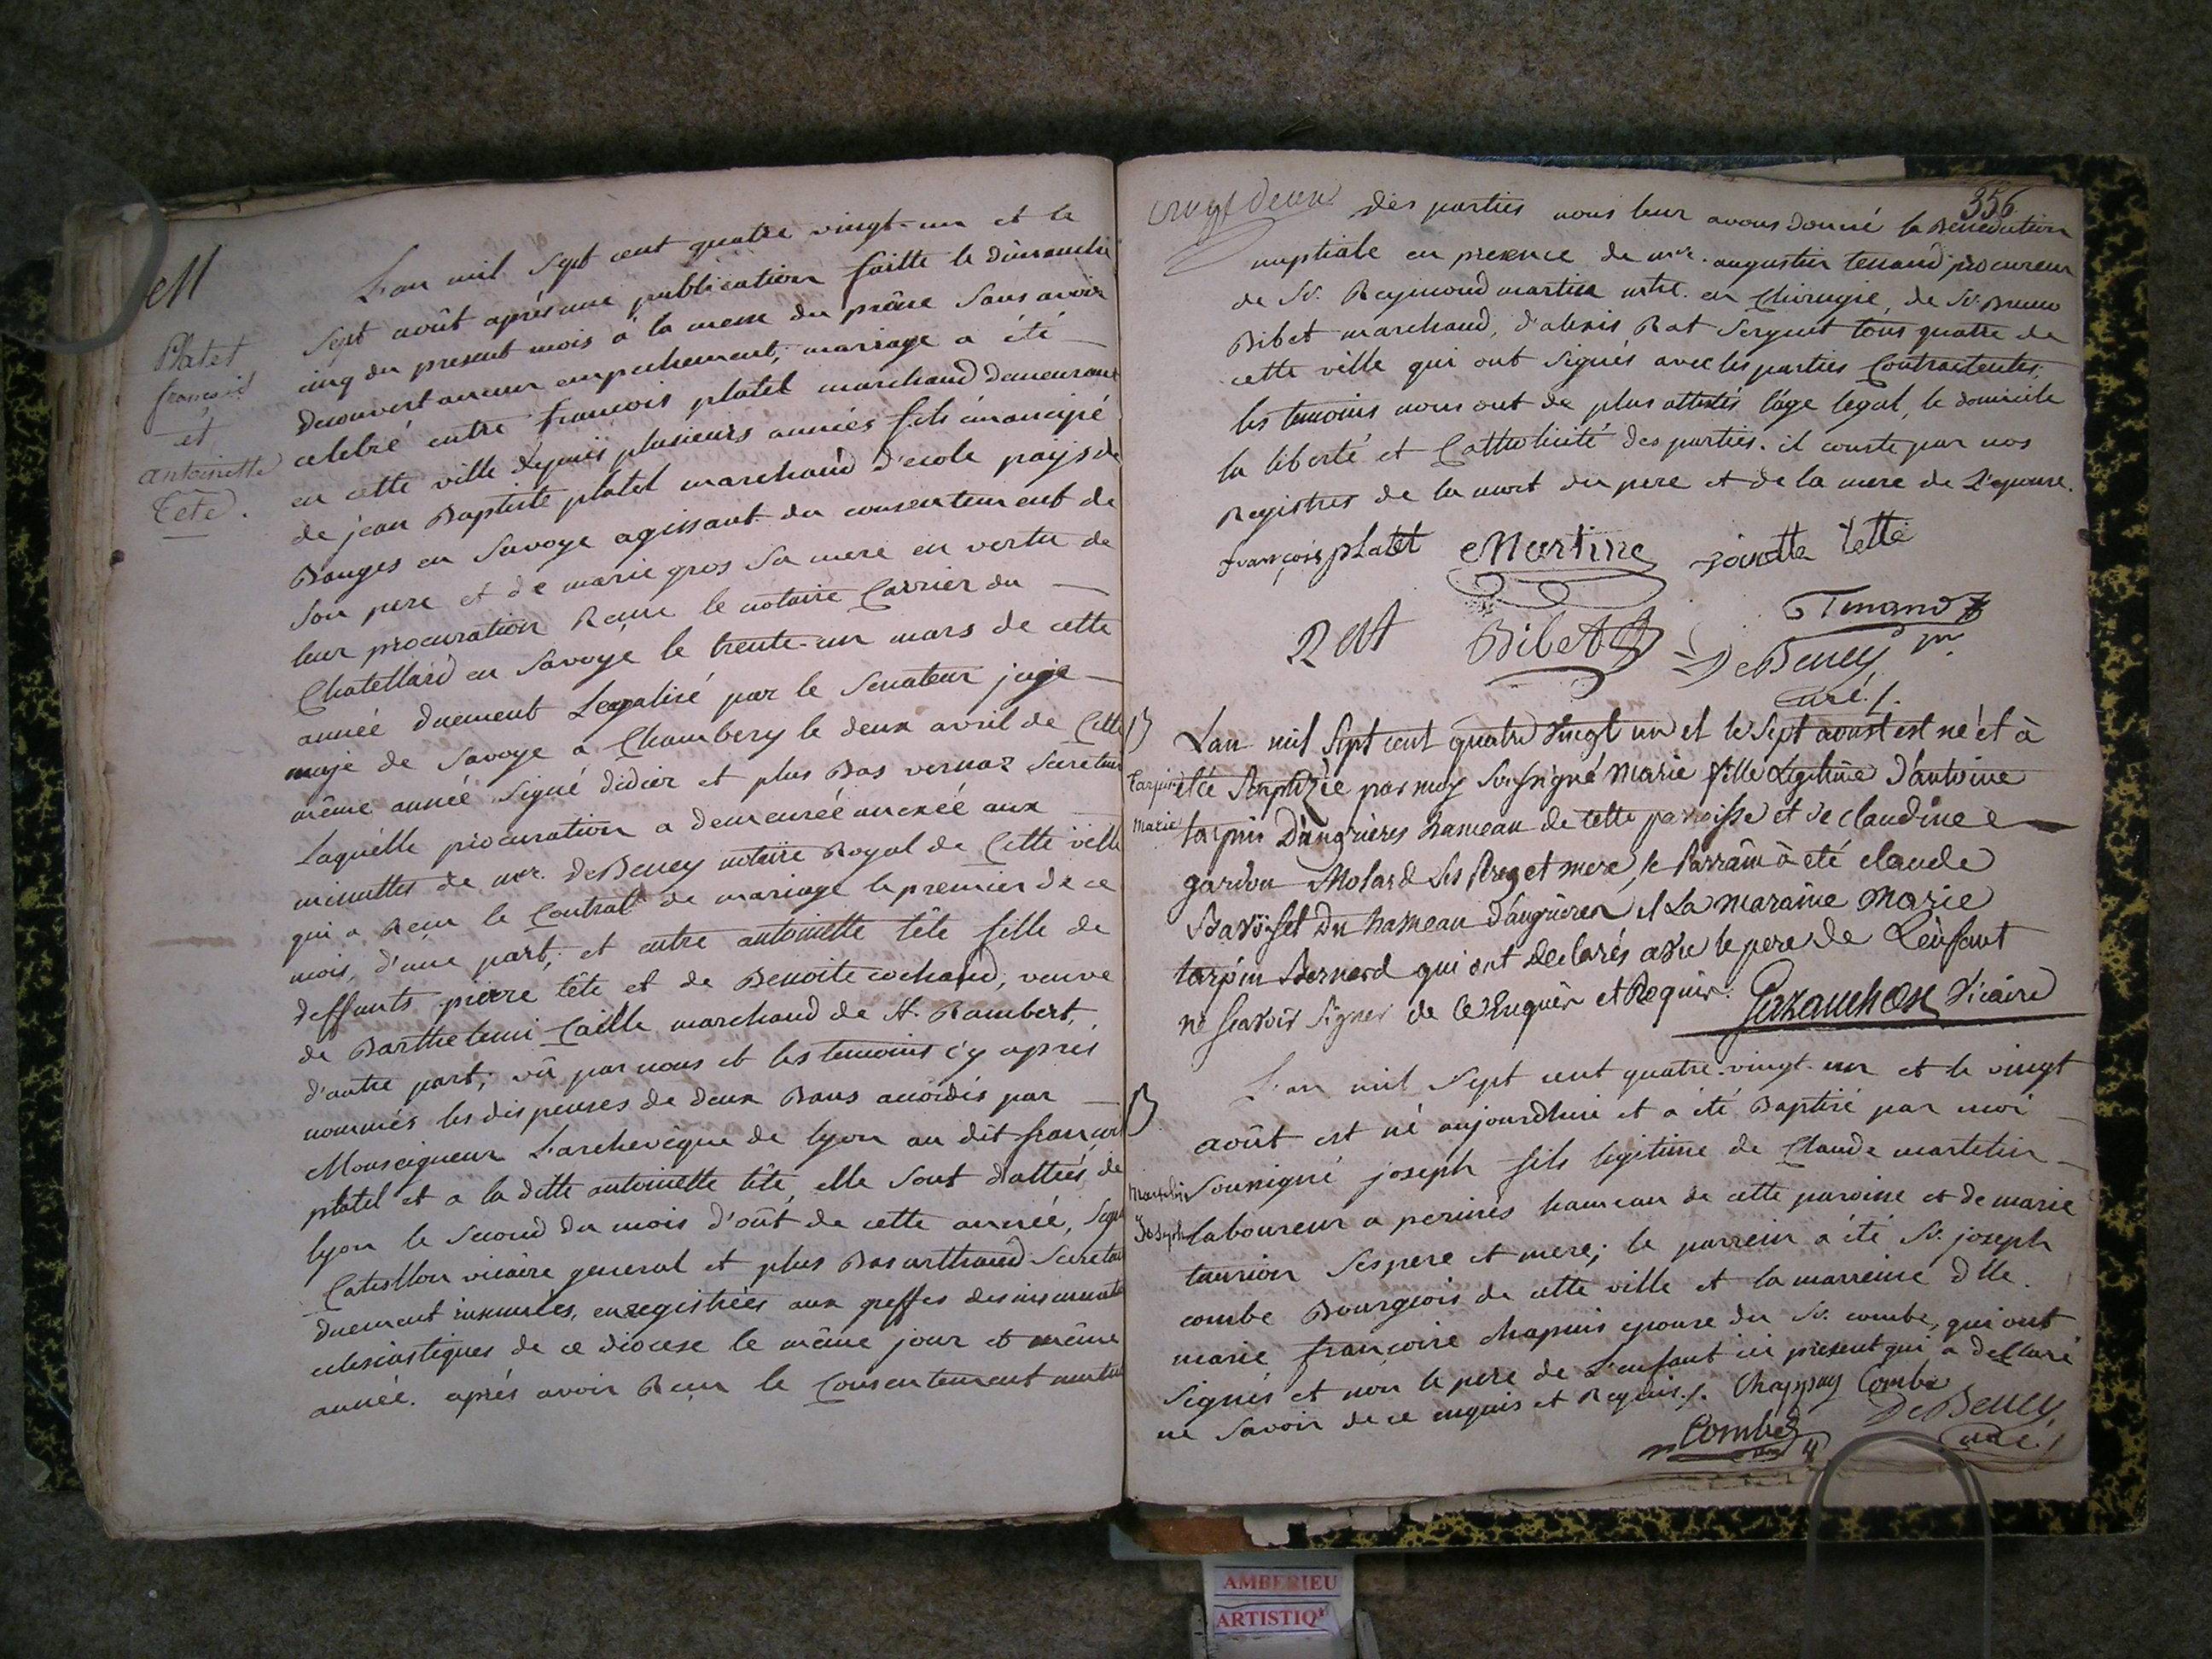 M
Platet
francois
et
antoinette
Tete.
L'an mil sept cent quatre vingt-un et le
sept août aprés une publication faitte le dimanche
cinq du present mois à la messe du prône sans avoir
decouvert aucun empechement, mariage a été
celebré entre francois platet marchand demeurant
en cette ville depuis plusieurs années fils émancipé
de jean Baptiste platet marchand d'ecole pays de
Bauges en Savoye agissant du consentement de
son pere et de marie gros sa mere en vertu de
leur procuration Recue le notaire Carrier du
Chatellard en Savoye le trente-un mars de cette
année duement Legalisé par le Senateur juge
maje de Savoye a Chambery le deux avril de Cette
même année signé didier et plus Bas vernaz
Laquelle procuration a demeurée anexée aux
minuttes de mr. DeBeney notaire Royal de Cette ville
qui a Recu le Contrat de mariage le premier de ce
mois, d'une part; et entre antoinette tête fille de
deffunts pierre tête et de Benoite cochand, veuve
de Barthelemi Caille marchand de St. Rambert,
d'autre part; vû par nous et les temoins c'y aprés
nommés les dispenses de deux Bans accordés par
Monseigneur L'archevêque de lyon au dit françois
platet et a la ditte antoinette tête, elle sont dattées de
lyon le second du mois d'oût de cette année,
vicaire general et plus Bas
duement insinuées, enregistrées aux greffes des
eclesiastiques de ce diocese le même jour et même
année. aprés avoir Recu le Consentement mutuel
356
vingt deux
des parties nous leur avons donné la Benediction
nuptiale en presence de mr. augustin tenand procureur
de Sr. Reymond martine mtre. en Chirugie, de Sr. Bruno
Bibet marchand, d'alexis Rat Sergent tous quatre de
cette ville qui ont signés avec les parties Contractentes.
les temoins nous ont de plus attestés l'âge legal, le domicile
la liberté et Catholicité des parties. il conste par nos
Registres de la mort du pere et de la mere de L'epouse.
françois platet Martine toinette tette
Rat Bibet Tenand
DeBeney
curé /.
B
Tarpin
Marie
Lan mil sept cent quatre vingt un et le sept aoust est né et à
été Baptizée par moy soussigné Marie fille Legitime d'antoine
tarpin D'angrieres hameau de cette paroisse et de claudine
gardon Molard ses pere et mere, le parrain à eté claude
du hameau d'angrieres et La maraine Marie
tarpin Bernard qui ont declarés avec le pere de L'enfant
ne scavoir signer de ce Enquis et Requis.
Vicaire
B
Martelin
Joseph
L'an mil sept cent quatre-vingt-un et le vingt
août est né aujourdhui et a été Baptisé par moi
soussigné joseph fils legitime de Claude martelin
laboureur a hameau de cette paroisse et de marie
ses pere et mere; le parrein a été Sr. joseph
combe Bourgeois de cette ville et la marreine dlle.
marie françoise chapuis epouse du Sr. combe, qui ont
signés et non le pere de L'enfant ici present qui a declaré
ne savoir de ce enquis et Requis /. Chappuy Combe
Combe DeBeney
curé /
AMBERIEU
ARTISTIQ